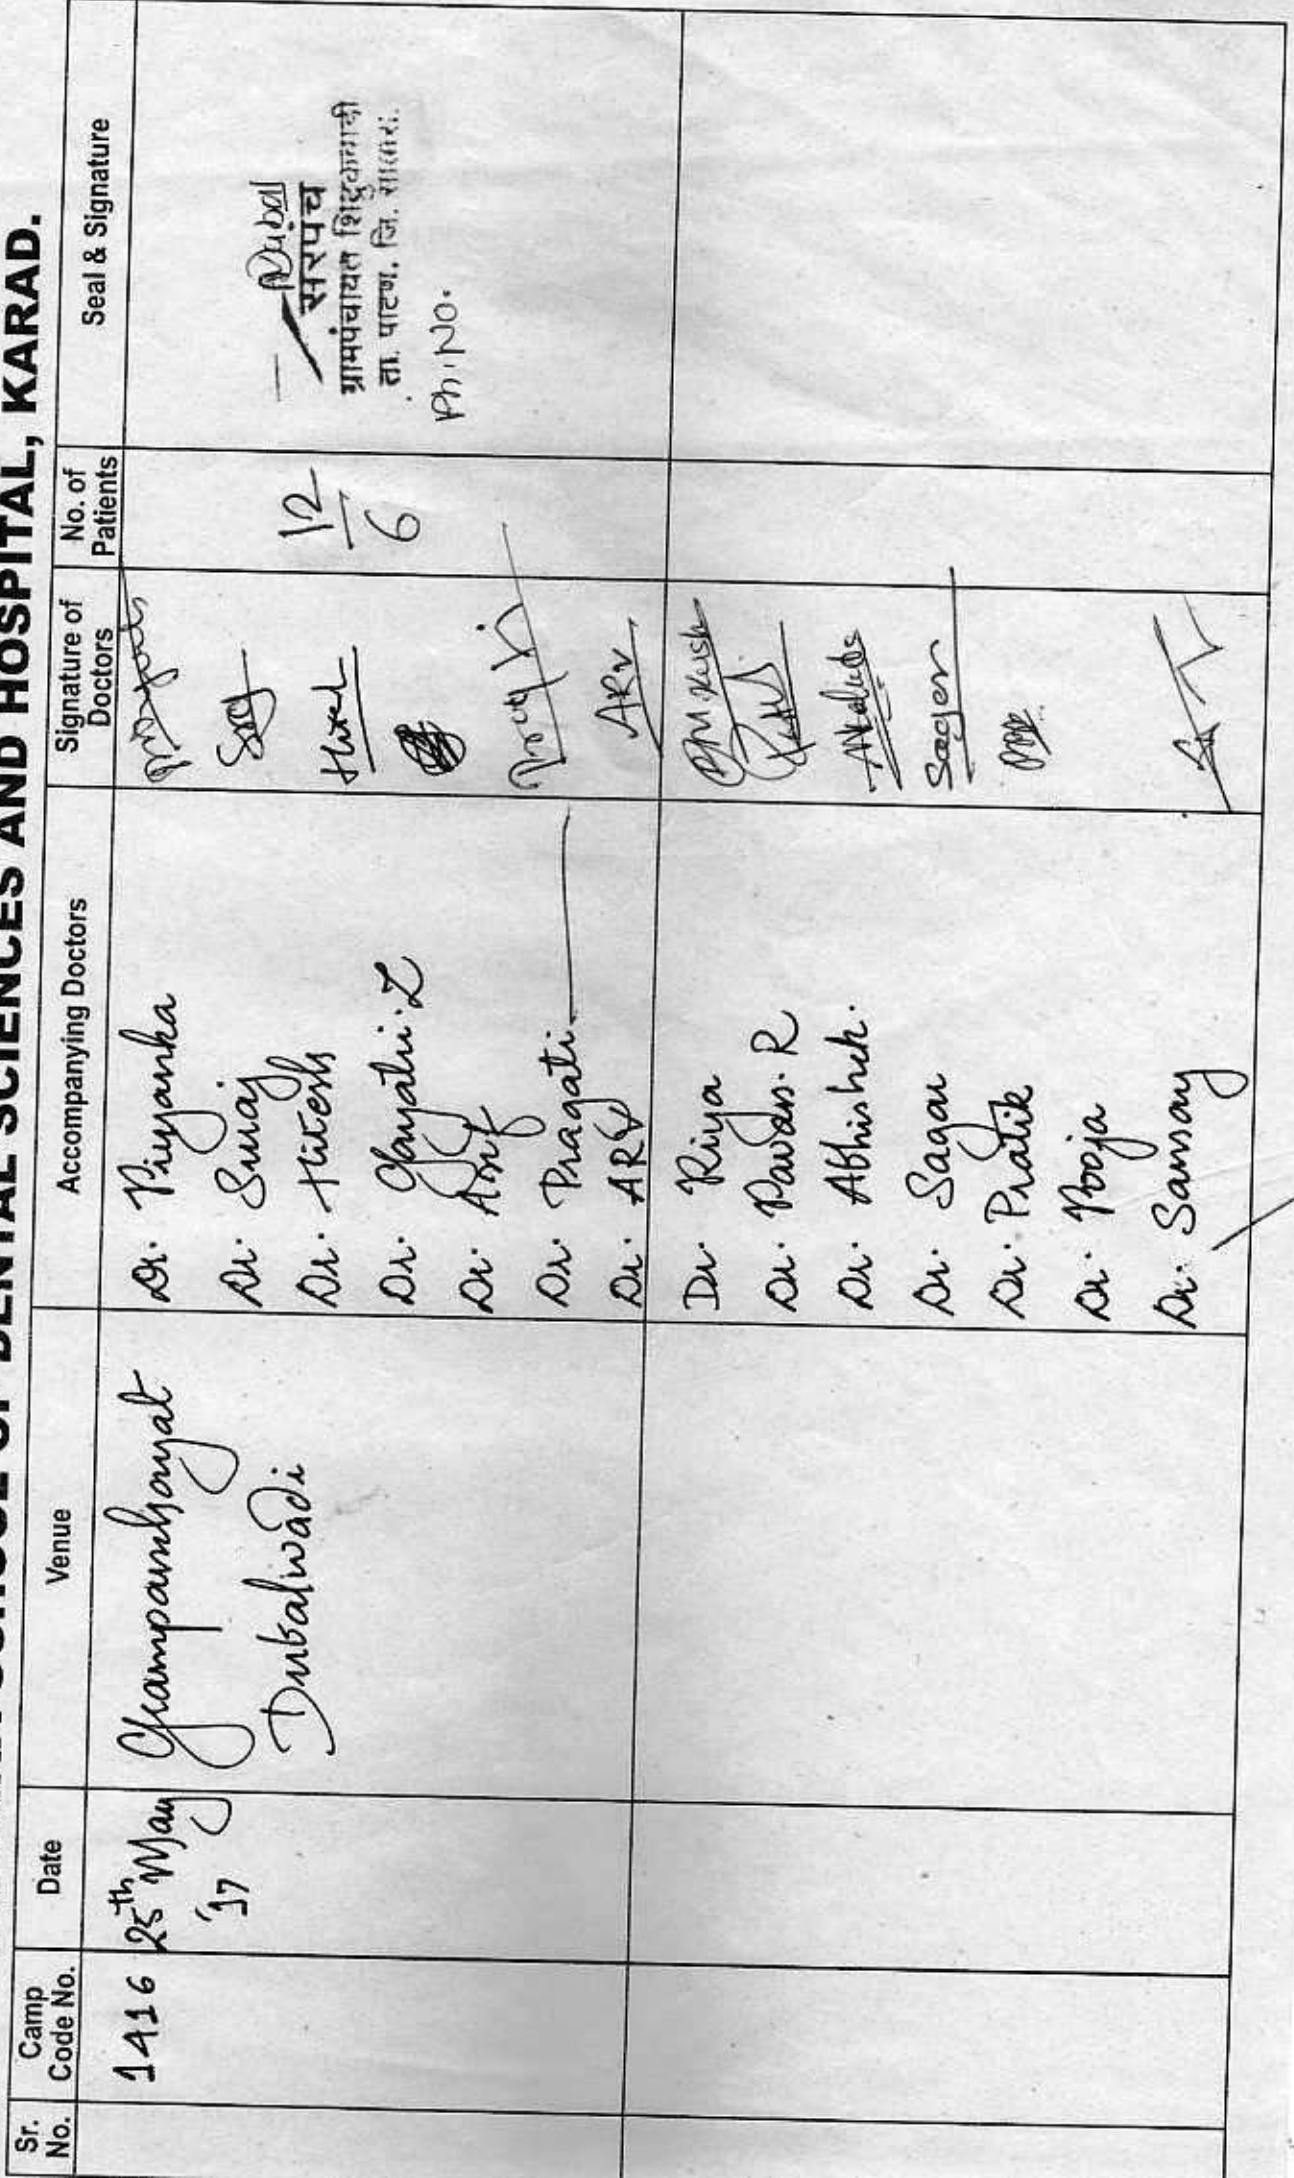 SCHOOL OF DENTAL SCIENCES AND HOSPITAL, KARAD.
Sr. No. Camp Code No. Date Venue Accompanying Doctors Signature of Doctors No. of Patients Seal & Signature
1416 25th May '17
Grampanchayat
Dubalwadi
Dr. Priyanka
Dr. Suraj
Dr. Hitesh
Dr. Gayatri. Z
Dr. Asif
Dr. Pragati
Dr. ARV
ARV
12
6
सरपंच
ग्रामपंचायत शिद्रुकवाडी
ता. पाटण. जि. सातारा.
Ph. NO.
Dr. Riya
Dr. Pavan. R
Dr. Abhishek.
Dr. Sagar
Sagar
Dr. Pratik
Dr. Pooja
Dr. Sansay